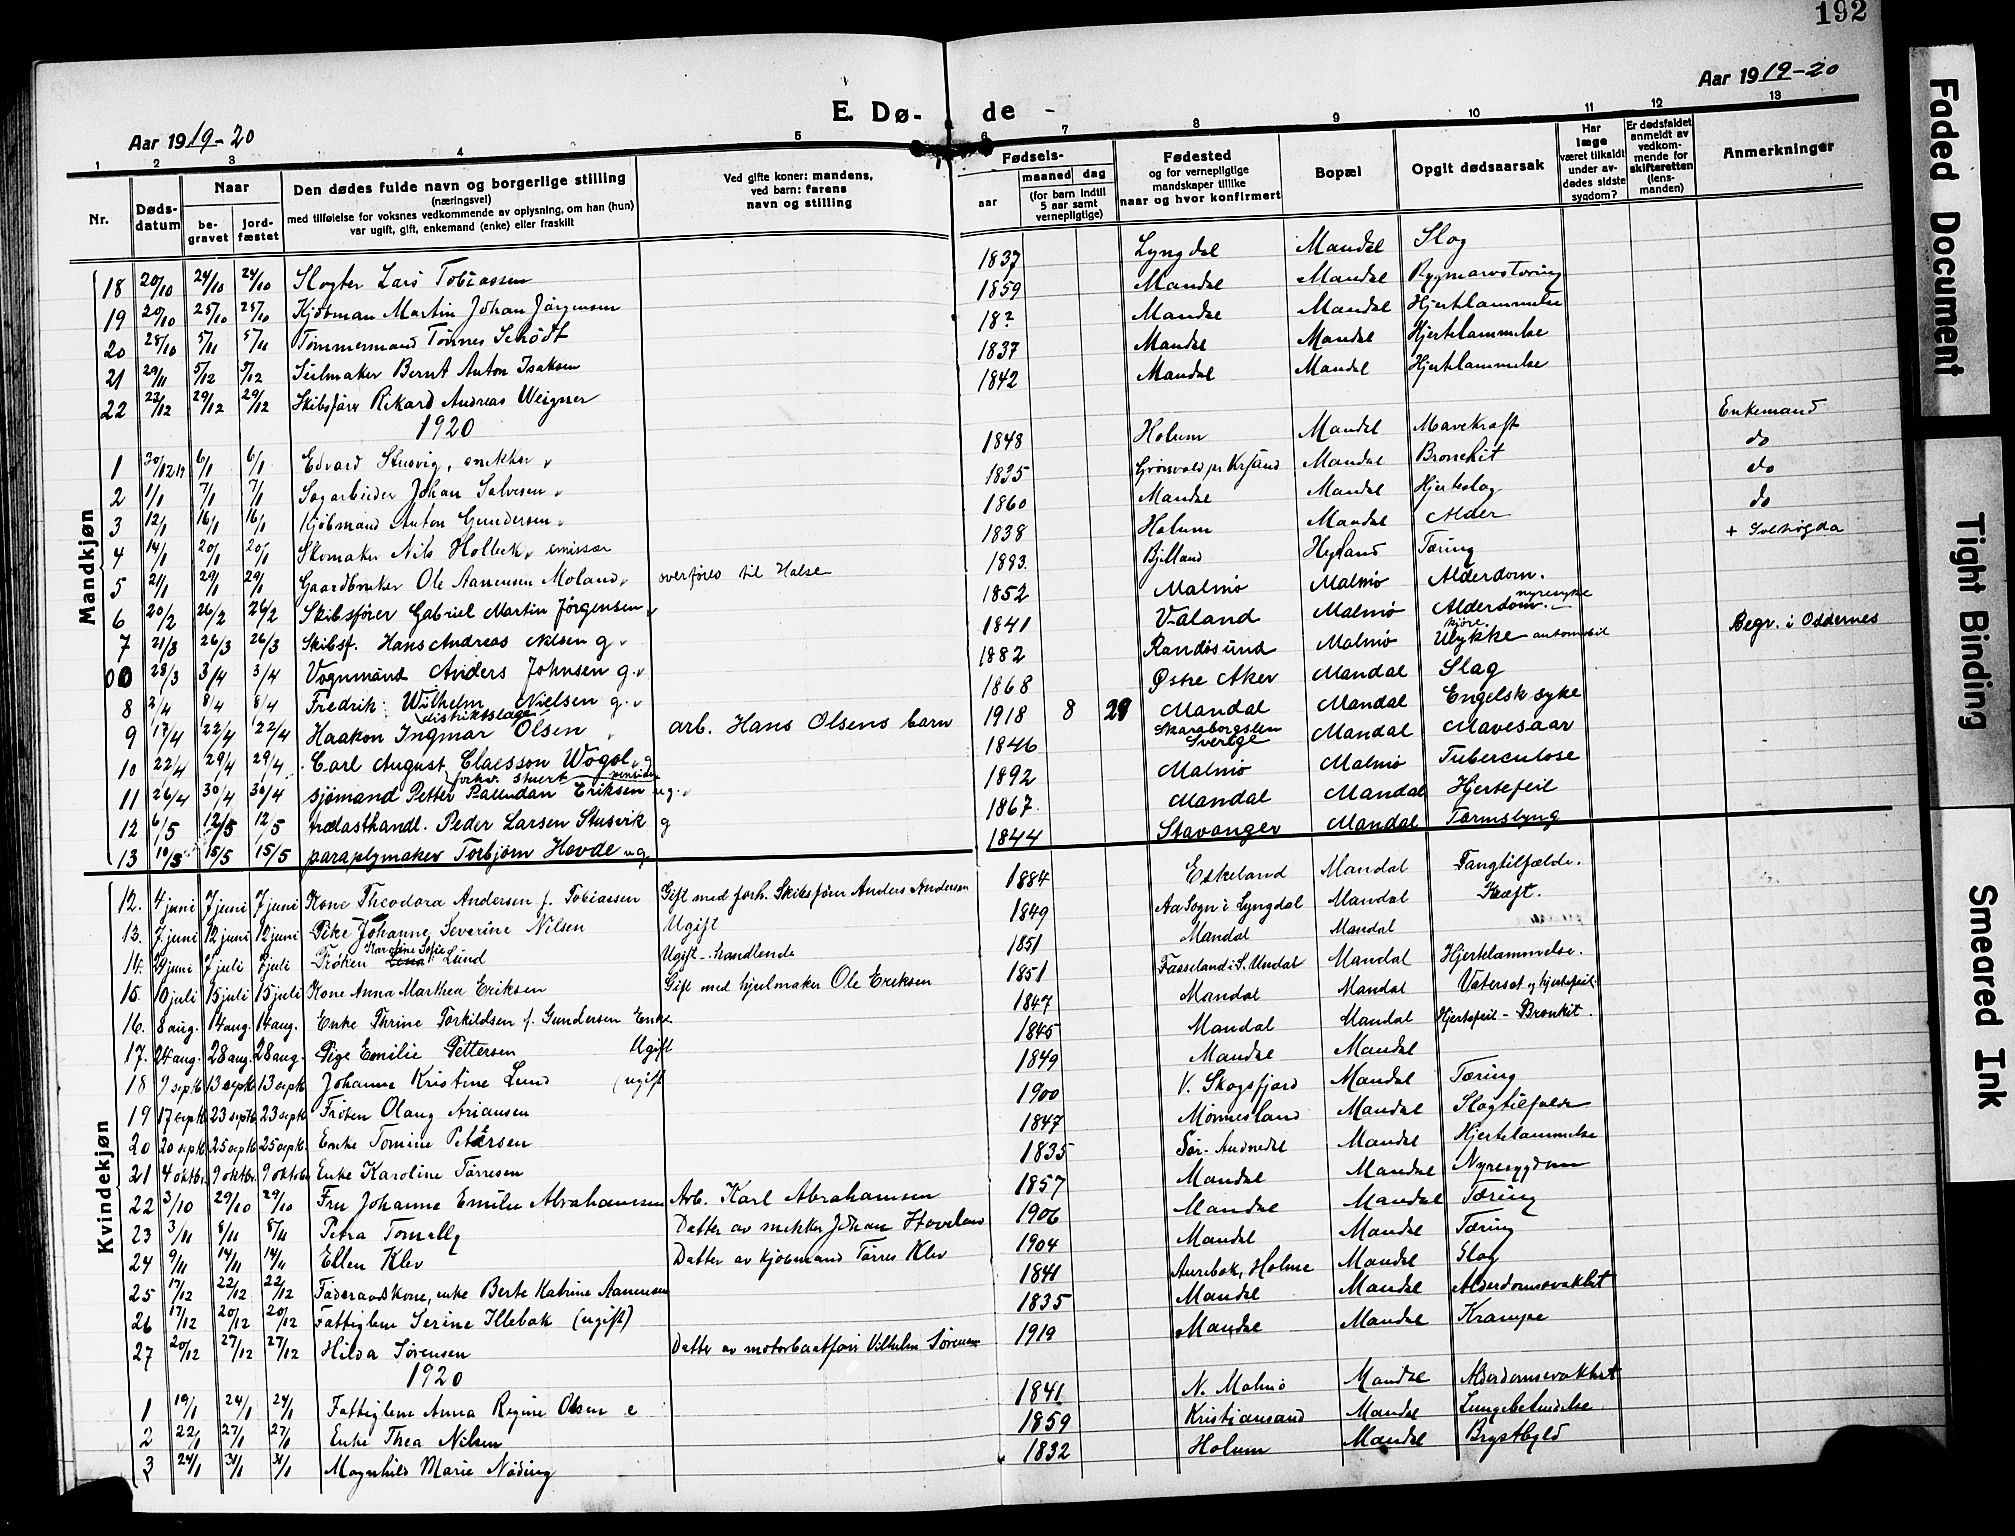 192
Aar 1919-20
E. Dø- de
Aar 1919-20
1 2 3 4 5 6 7 8 9 10 11 12 13
Nr.
Døds-
datum
Naar
be-
gravet
jord-
fæstet
Den dødes fulde navn og borgerlige stilling
(næringsvei)
med tilføielse for voksnes vedkommende av oplysning, om han (hun)
var ugift, gift, enkemand (enke) eller fraskilt
Ved gifte koner: mandens,
ved barn: farens
navn og stilling
Fødsels-
aar
maaned dag
(for barn indtil
5 aar samt
vernepligtige)
Fødested
og for vernepligtige
mandskaper tillike
naar og hvor konfirmert
Bopæl
Opgit dødsaarsak
Har
læge
været tilkaldt
under av-
dødes sidste
sygdom?
Er dødsfaldet
anmeldt av
vedkom-
mende for
skifteretten
(lens-
manden)
Anmerkninger
Mandkjøn
18 20/10 24/10 24/10 Slagter Lars Tobiassen 1837 Lyngdal Mandal Slag
19 20/10 25/10 25/10 Kjøbman Martin Johan Jørgensen 1859 Mandal Mandal Rygmarvstæring
20 28/10 5/11 5/11 Tømmermand Tønnes Schrødt 18? Mandal Mandal Hjertelammelse
21 29/11 5/12 5/12 Seilmaker Bernt Anton Isaksen 1837 Mandal Mandal Hjertelammelse
22 23/12 29/12 29/12 Skibsfører Rikard Andreas Weigner 1842 Mandal Mandal Hjertelammelse
1920
1 30/12 19 6/1 6/1 Edvard Stusvig, snekker 1848 Holum Mandal Mavekræft Enkemand
2 1/1 7/1 7/1 Sagarbeider Johan Salvesen 1835 Mandal Bronchit do
3 12/1 16/1 16/1 Kjøbmand Anton Gundersen 1860 Mandal Mandal Hjerteslag do
4 14/1 20/1 20/1 Skomaker Nils Holbek, emissær 1838 Holum Mandal Alder do
5 21/1 29/1 29/1 Gaardbruker Ole Aanensen Moland overføres til Halse 1893 Bjelland Tæring
6 20/2 26/2 26/2 Skibsfører Gabriel Martin Jørgensen 1852 Malmø Malmø Alderdom.
7 21/3 26/3 26/3 Skibsf. Hans Andreas Nilsen g. 1841 Valand Malmø Alderdom. nyresyke
00 28/3 3/4 3/4 Vognmand Anders Johnsen g. 1882 Randøsund Malmø Ulykke automobil Begr. i Oddernes
8 2/4 8/4 8/4 Fredrik Wilhelm Nielsen g. 1868 Østre Aker Mandal Slag
9 17/4 22/4 22/4 Haakon Ingmar Olsen arb. Hans Olsens barn 1918 8 29 Mandal Mandal Engelsk syke
10 22/4 29/4 29/4 distriktslæge Carl August Claesson Wogel g 1846 Skaraborgslen Sverige Mandal Mavesaar
11 26/4 30/4 30/4 sjømand Petter Palludan Eriksen ug. 1892 Malmø Malmø Tuberculose
12 6/5 12/5 12/5 trælasthandl. Peder Larsen Stusvik g 1867 Mandal Mandal Hjertefeil
13 10/5 15/5 15/5 paraplymaker Torbjørn Hovde ug. 1844 Stavanger Mandal Tarmslyng
Kvindekjøn
12. 4 juni 7 juni 7 juni Kone Theodora Andersen f. Tobiassen Gift med forh. Skibsfører Anders Andersen 1884 Eskeland Mandal Tangtilfælde.
13. 7 juni 12 juni 12 juni Pike Johanne Severine Nilsen Ugift 1849 Aa Sogn i Lyngdal Mandal Kræft.
14. 24 juni 7 juli 7 juli Frøken Karoline Sofie Lund Ugift - handlende 1851 Mandal Mandal
15. 10 juli 15 juli 15 juli Kone Anna Marthea Eriksen Gift med hjulmaker Ole Eriksen 1851 Fasseland i S. Undal Mandal Hjertelammelse.
16. 8 aug. 14 aug. 14 aug. Enke Thrine Torkildsen f. Gundersen Enke 1847 Mandal Mandal Vatersot og hjertefeil
17. 24 aug. 28 aug. 28 aug. Pige Emilie Pettersen Ugift 1845 Mandal Mandal Hjertefeil - Bronkit.
18 9 septb 13 septb 13 septb Johanne Kristine Lund (ugift 1849 Mandal Mandal
19 17 septb 23 septb 23 septb Frøken Olaug Ariansen 1900 V. Skogsfjord Mandal Tæring
20 20 septb 25 septb 25 septb Enke Tomine Petersen 1847 Mønnesland Mandal Slagtilfælde
21 4 oktbr 9 oktbr. 9 oktober Enke Karoline Tørresen 1835 Sør-Audnedal Mandal Hjertelammelse
22 3/10 29/10 29/10 Fru Johanne Emilie Abrahamsen Arb. Karl Abrahamsen 1857 Mandal Mandal Nyresygdom
23 3/11 8/11 8/11 Petra Datter av snekker Johan Hoveland 1906 Mandal Mandal Tæring
24 9/11 14/11 14/11 Ellen Klev Datter av kjøbmand Tørres Klev 1904 Mandal Mandal Tæring
25 17/12 22/12 22/12 Føderaadskone, enke Berte Katrine Aanensen 1841 Aurebek, Holme Mandal Slag
26 17/12 20/12 20/12 Fattiglem Serine Illebæk (ugift) 1835 Mandal Mandal Alderdomssvakhet
27 20/12 27/12 27/12 Hilda Sørensen Datter av motorbaatfører Vilhelm Sørensen 1919 Mandal Mandal Krampe
1920
1 19/1 24/1 24/1 Fattiglem Anna Regine Olsen e 1841 N. Malmø Mandal Alderdomssvakhet
2 22/1 27/1 27/1 Enke Thea Nilsen 1859 Kristiansand Mandal Lungebetændelse
3 24/1 31/1 31/1 Magnhild Marie Nøding 1832 Holum Mandal Brystbyld
Faded Document
Tight Binding
Smeared Ink